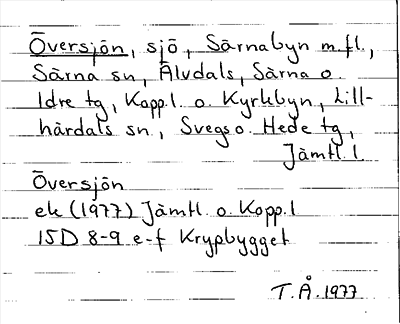 Översjön, sjö, Särnabyn m.fl.,
Särna sn, Älvdals, Särna o.
Idre tg, Kopp.l. o. Kyrkbyn, Lill-
härdals sn., Svegs o. Hede tg,
Jämtl. l.
Översjön
ek (1977) Jämtl. o. Kopp.l
15D 8-9 e-f Krypbygget
T.Å. 1977